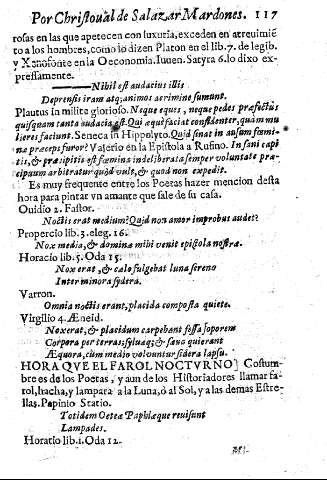 Por Christoual de Salazar Mardones. 117
rosas en las que apetecen con luxuria, exceden en atreuimiẽ
to a los hombres, como lo dizen Platon en el lib. 7. de legib.
y Xenofonte en la Oeconomia. Iuuen. Satyra 6. lo dixo ex-
pressamente.
Nihil est audacius illis
Deprensis iram atq; animos acrimine sumunt.
Plautus in milite glorioso. Neque eques, neque pedes præfectus
quisquam tanta audacia est. Qui æquè faciat confidenter, quàm mu
lieres faciunt. Seneca in Hippolyto. Quid sinat in ausum fœmi
na præceps furor? Valerio en la Epistola a Rufino. In sani capi
tis, & præcipitis est fœmina indeliberata semper voluntate præ-
cipuum arbitratur quòd vult, & quod non expedit.
Es muy frequente entre los Poetas hazer mencion desta
hora para pintar vn amante que sale de su casa.
Ouidio 2. Fastor.
Noctis erat medium? Quid non amor improbus audet?
Propercio lib. 3. eleg. 16.
Nox media, & dominæ mihi venit epistola nostræ.
Horacio lib. 5. Oda 15.
Nox erat, & cælo fulgebat luna sereno
Inter minora sydera.
Varron.
Omnia noctis erant, placida composta quiete.
Virgilio 4. Æneid.
Nox erat, & placidum carpebant fessa soporem
Corpora per terras: syluæq; & sæua quierant
Æquora, cùm medio voluuntur sidera lapsu.
HORA QVE EL FAROL NOCTVRNO) Costum-
bre es de los Poetas, y aun de los Historiadores llamar fa-
rol, hacha, y lampara a la Luna, ò al Sol, y a las demas Estre-
llas. Papinio Statio.
Totidem Oeteæ Paphiæque reuisunt
Lampades.
Horatio lib. 1. Oda 12.